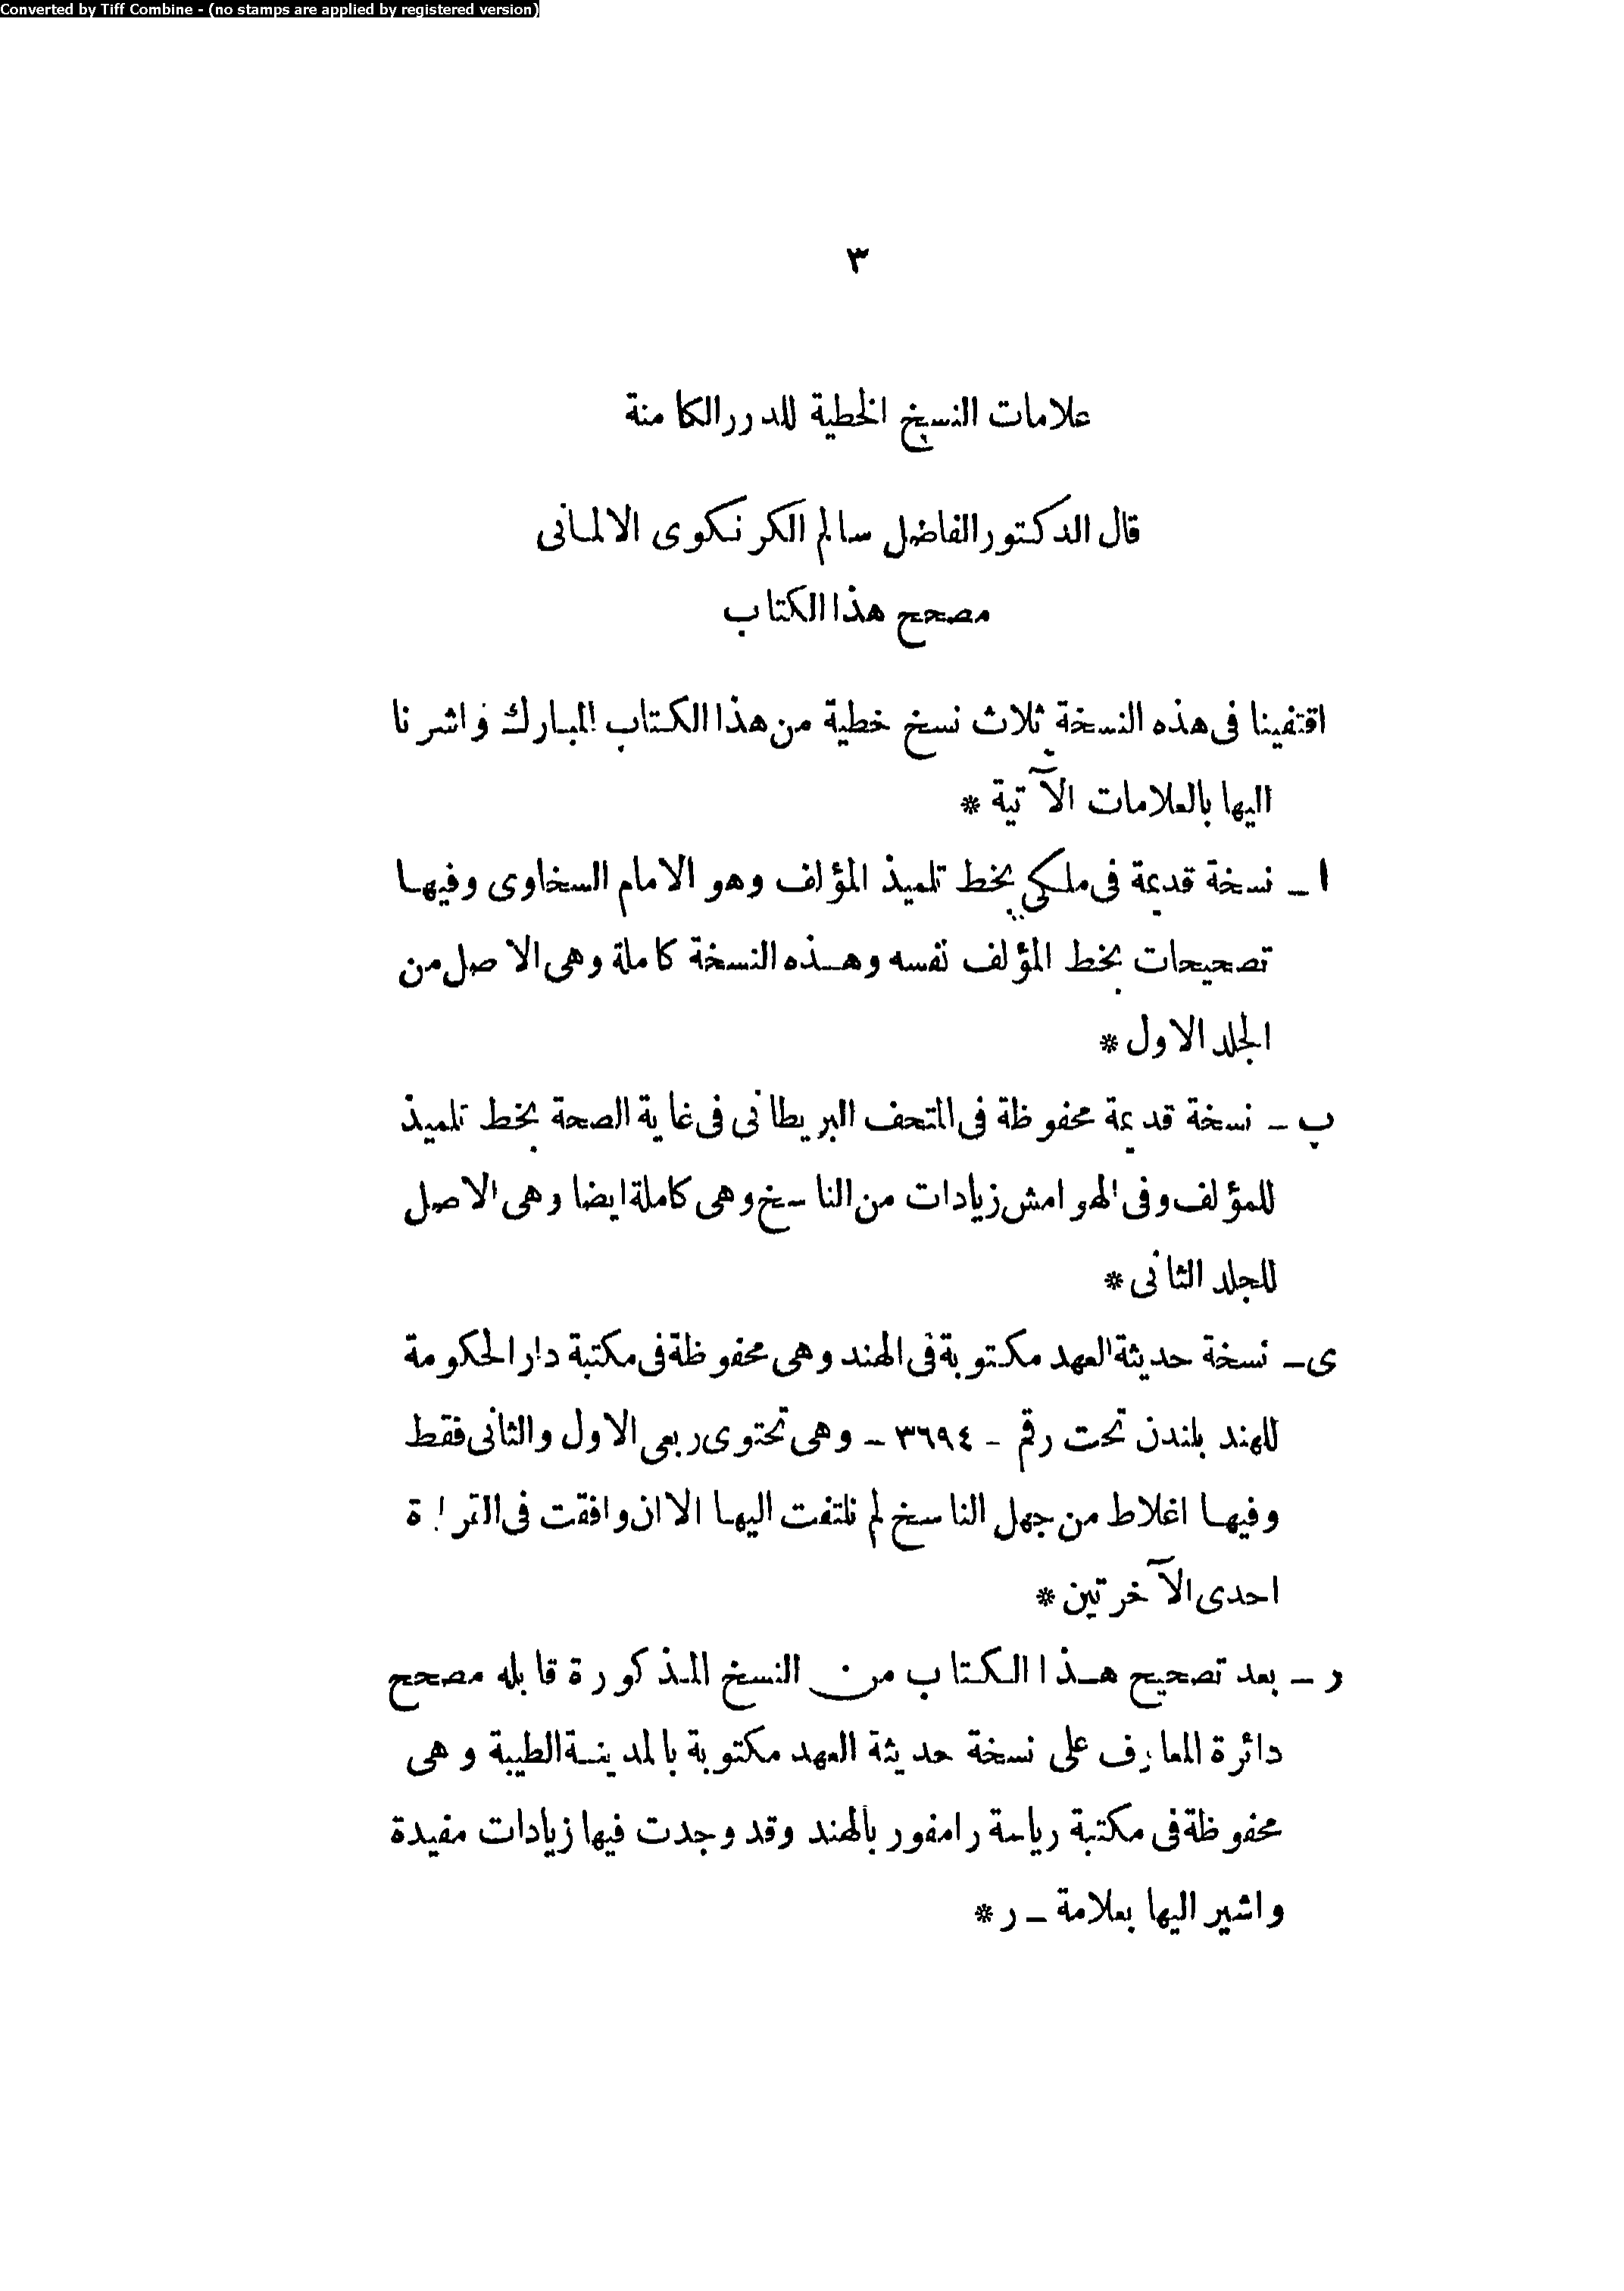 Converted by Tiff Combine - (no stamps are applied by registered version)
٣
علامات النسخ الخطية للدرر الكامنة
قال الدكتور الفاضل سالم الكرنكوى الالمانى
مصحح هذا الكتاب
اقتفينا فى هذه النسخة ثلاث نسخ خطية من هذا الكتاب المبارك واشرنا
اليها بالعلامات الآتية *
ا ـ نسخة قديمة فى ملكى بخط تلميذ المؤلف وهو الامام السخاوى وفيها
تصحيحات بخط المؤلف نفسه وهذه النسخة كاملة وهى الاصل من
الجلد الاول *
ب ـ نسخة قديمة محفوظة فى المتحف البريطانى فى غاية الصحة بخط تلميذ
للمؤلف وفى الهوامش زيادات من الناسخ وهى كاملة ايضا وهى الاصل
للجلد الثانى *
ى ـ نسخة حديثة العهد مكتوبة فى الهند وهى محفوظة فى مكتبة دار الحكومة
للهند بلندن تحت رقم ـ ٣٦٩٤ ـ وهى تحتوى ربعى الاول والثانى فقط
وفيها اغلاط من جهل الناسخ لم نلتفت اليها الا ان وافقت فى القراءة
احدى الآخرتين *
ر ـ بعد تصحيح هذا الكتاب من النسخ المذكورة قابله مصحح
دائرة المعارف على نسخة حديثة العهد مكتوبة بالمدينة الطيبة وهى
محفوظة فى مكتبة رياسة رامفور بالهند وقد وجدت فيها زيادات مفيدة
واشير اليها بعلامة ـ ر *